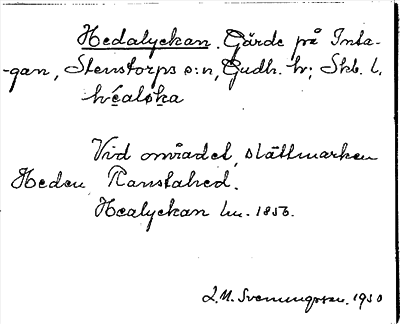 Hedalyckan. Gärde på Inta-
-gan, Stenstorps s:n, Gudh. hr; Skb. l.
Vid området, slättmarken
Heden, Ranstahed.
Healyckan lm. 1856.
L.M. Svenungsson. 1930